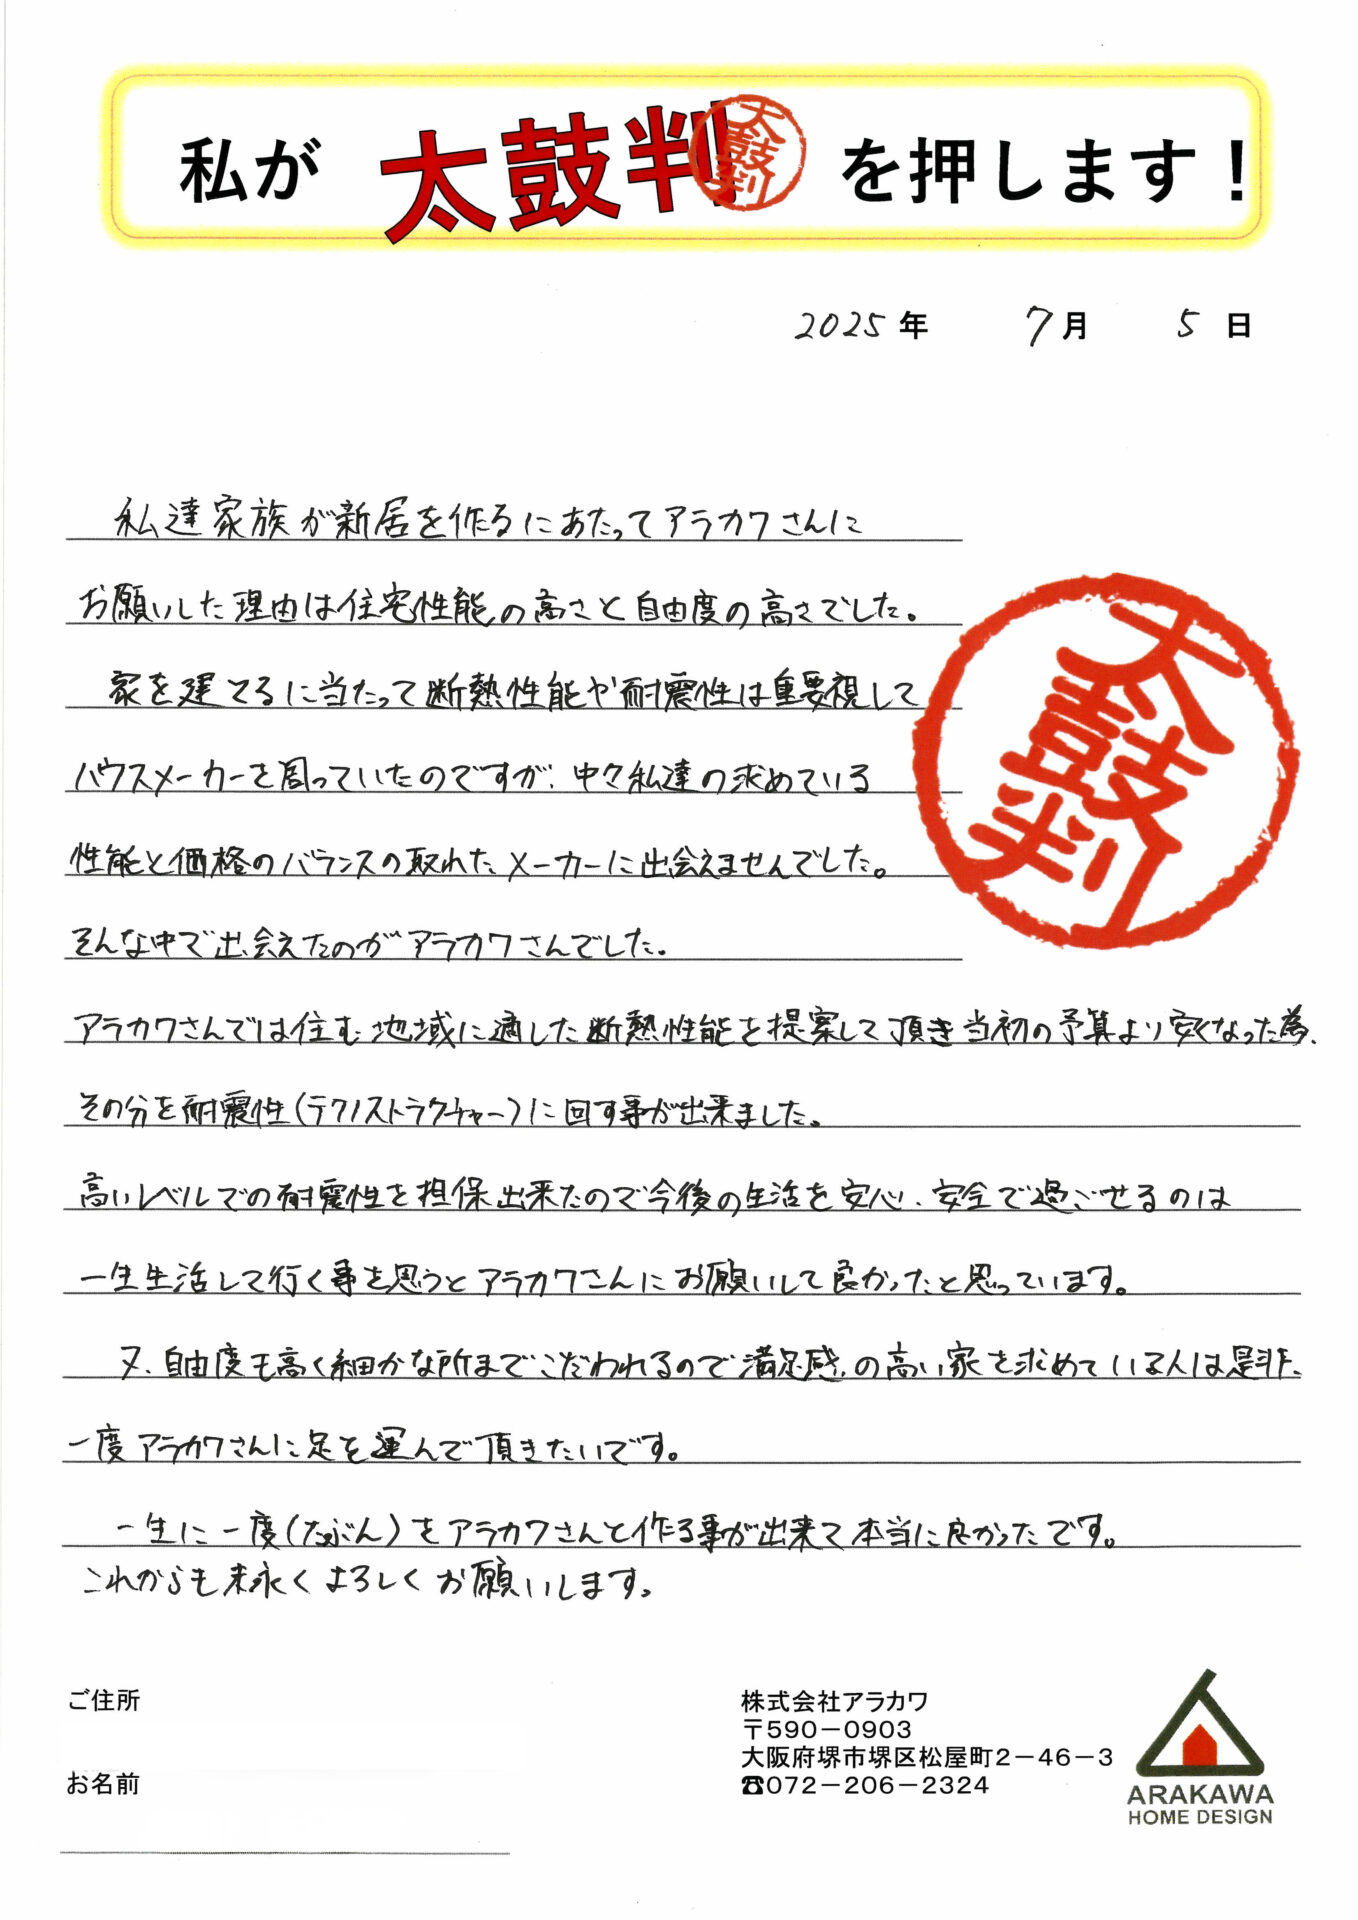 私が 太鼓判 太鼓判 を押します！
2025年 7月 5日
私達家族が新居を作るにあたってアラカワさんに
お願いした理由は住宅性能の高さと自由度の高さでした。
家を建てるに当たって断熱性能や耐震性は重要視して
ハウスメーカーを周っていたのですが、中々私達の求めている
性能と価格のバランスの取れたメーカーに出会えませんでした。
そんな中で出会えたのがアラカワさんでした。
太鼓判
アラカワさんでは住む地域に適した断熱性能を提案して頂き当初の予算より安くなった為、
その分を耐震性(テクノストラクチャー)に回す事が出来ました。
高いレベルでの耐震性を担保出来たので今後の生活を安心、安全で過ごせるのは
一生生活して行く事を思うとアラカワさんにお願いして良かったと思っています。
又、自由度も高く細かな所までこだわれるので満足感の高い家を求めている人は是非、
一度アラカワさんに足を運んで頂きたいです。
一生に一度(たぶん)をアラカワさんと作る事が出来て本当に良かったです。
これからも末永くよろしくお願いします。
ご住所
お名前
株式会社アラカワ
〒590－0903
大阪府堺市堺区松屋町2－46－3
☎072－206－2324
ARAKAWA
HOME DESIGN